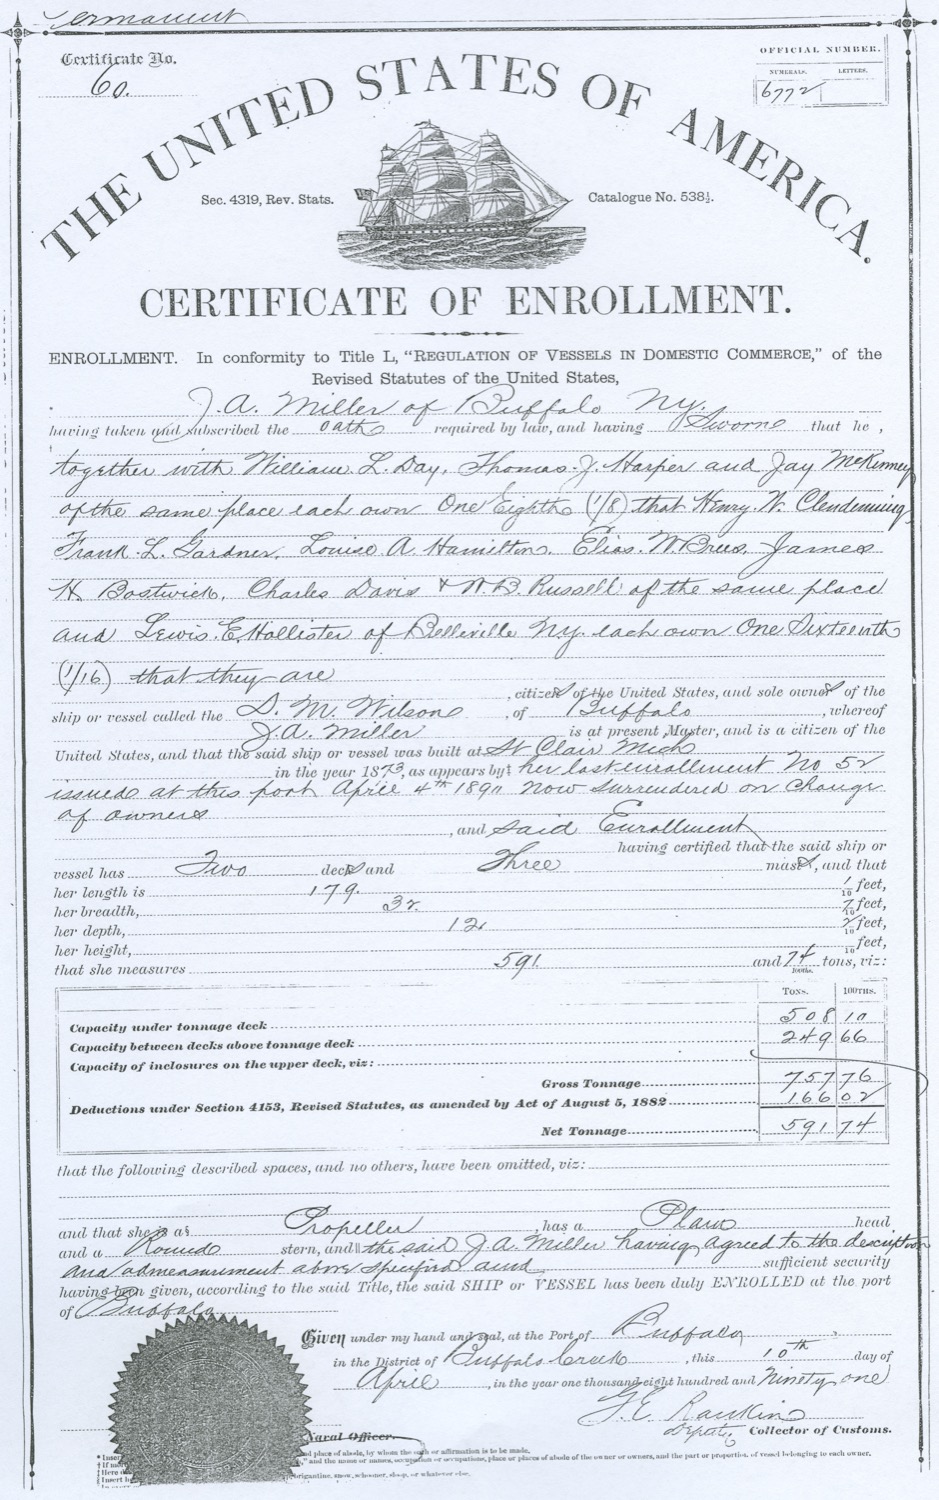 Permanent
Certificate No.
60.
OFFICIAL NUMBER.
NUMERALS. LETTERS.
6772
THE UNITED STATES OF AMERICA.
Sec. 4319, Rev. Stats.
Catalogue No. 538½.
CERTIFICATE OF ENROLLMENT.
ENROLLMENT. In conformity to Title L, “REGULATION OF VESSELS IN DOMESTIC COMMERCE,” of the
Revised Statutes of the United States,
J. A. Miller of Buffalo Ny.
having taken and subscribed the oath required by law, and having Sworn that he,
together with William L. Day, Thomas J. Harper and Jay McKinney
of the same place each own One Eighth (1/8) that Henry W. Clendenning
Frank L. Gardner, Louise A Hamilton, Elias W. Brees, James
H Bostwick, Charles Davis & W. B. Russell of the same place
and Lewis E Hollister of Belleville Ny. each own One Sixteenth
(1/16) that they are
citizens of the United States, and sole owners of the
ship or vessel called the D. M. Wilson, of Buffalo, whereof
J. A. Miller is at present Master, and is a citizen of the
United States, and that the said ship or vessel was built at St Clair Mich
in the year 1873, as appears by‡ her last enrollment No 52
issued at this port April 4th 1891 Now Surrendered on Change
of owners
, and said Enrollment
having certified that the said ship or
vessel has Two decks and Three masts, and that
her length is 179. 1/10 feet,
her breadth, 32. 7/10 feet,
her depth, 12. 2/10 feet,
her height, /10 feet,
that she measures 591. and 74/100ths. tons, viz:
TONS. 100THS.
Capacity under tonnage deck 508 10
Capacity between decks above tonnage deck 249 66
Capacity of inclosures on the upper deck, viz:
Gross Tonnage 757 76
Deductions under Section 4153, Revised Statutes, as amended by Act of August 5, 1882 166 02
Net Tonnage 591 74
that the following described spaces, and no others, have been omitted, viz:
and that she is a§ Propeller, has a Plain head
and a Round stern, and‖ the said J. A. Miller having agreed to the description
and admeasurement above specified and sufficient security
having been given, according to the said Title, the said SHIP or VESSEL has been duly ENROLLED at the port
of Buffalo
Given under my hand and seal, at the Port of Buffalo,
in the District of Buffalo Creek, this 10th day of
April, in the year one thousand eight hundred and Ninety one
G. E. Rankin
Naval Officer.
Deputy Collector of Customs.
* Inser d place of abode, by whom the oath or affirmation is to be made.
† If mor " and the name or names, occupation or occupations, place or places of abode of the owner or owners, and the part or proportion of vessel belonging to each owner.
‡ Here
§ Insert brigantine, snow, schooner, sloop, or whatever else.